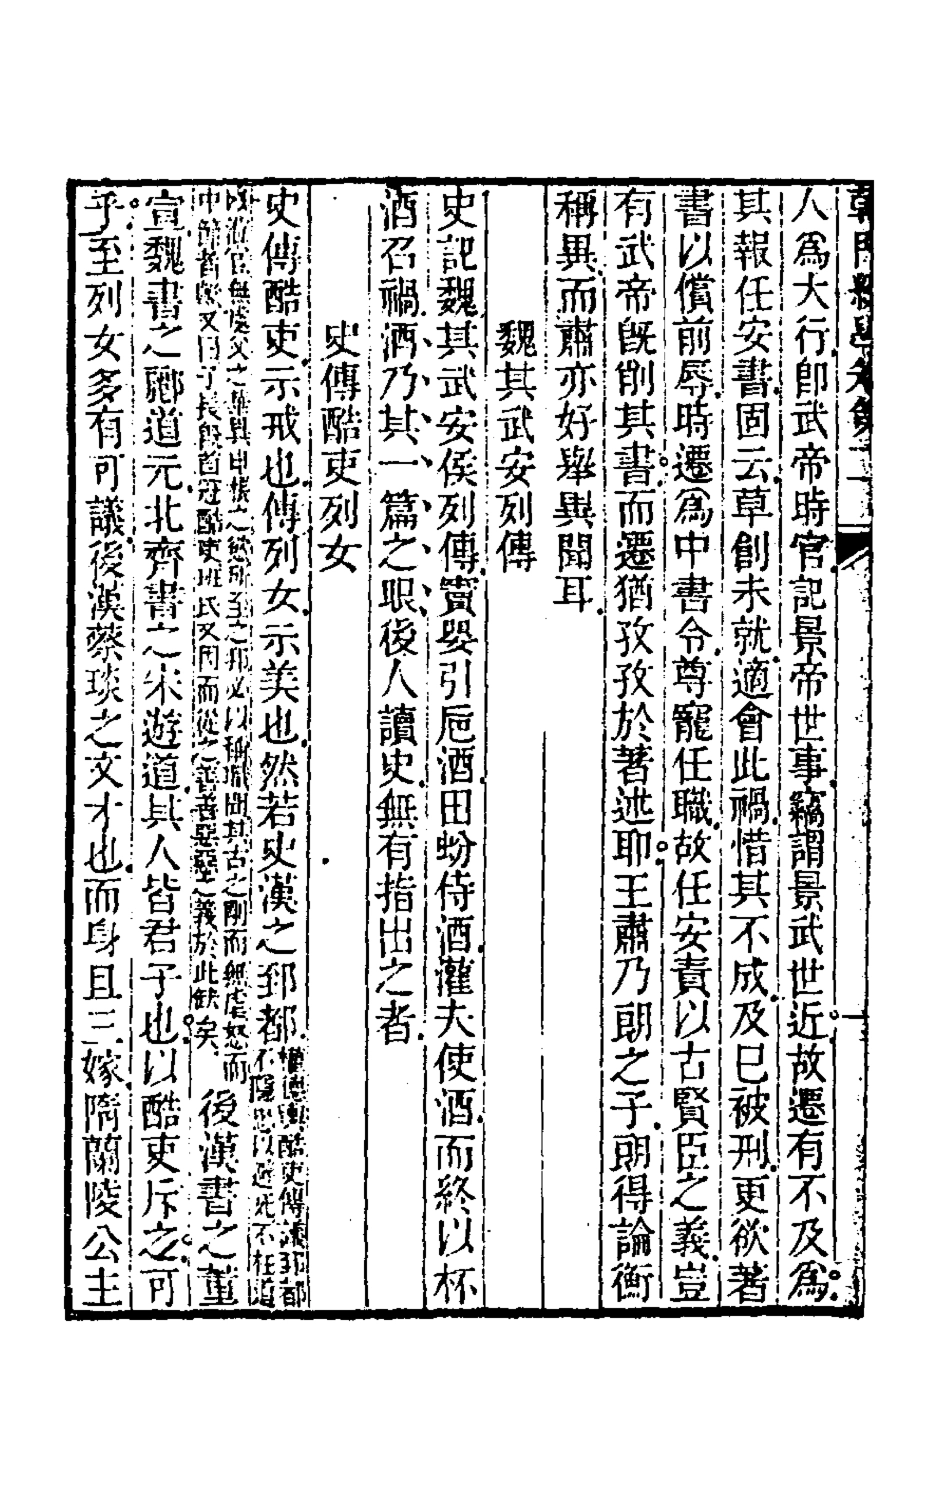 人爲大行卽武帝時官記景帝世事竊謂景武世近故遷有不及爲
其報任安書固云草創未就適會此禍惜其不成及已被刑更欲著
書以償前辱時遷爲中書令尊寵任職故任安責以古賢臣之義豈
有武帝旣削其書而遷猶孜孜於著述耶王肅乃朗之子朗得論衡
稱異而肅亦好舉異聞耳
魏其武安列傳
史記魏其武安侯列傳竇嬰引巵酒田蚡侍酒灌夫使酒而終以杯
酒召禍酒乃其一篇之眼後人讀史無有指出之者
史傳酷吏列女
史傳酷吏示戒也傳列女示美也然若史漢之郅都權德輿酷吏傳議郅都
不隱忠以避死不枉道
以涖官無
父之
之
所至之邦必以稱職聞其古之剛而無虐怒而
中節者歟又曰子長
首冠酷吏班氏又因而從之善善惡惡之義於此缺矣後漢書之董
宣魏書之酈道元北齊書之宋遊道其人皆君子也以酷吏斥之可
乎至列女多有可議後漢蔡琰之文才也而身且三嫁隋蘭陵公主